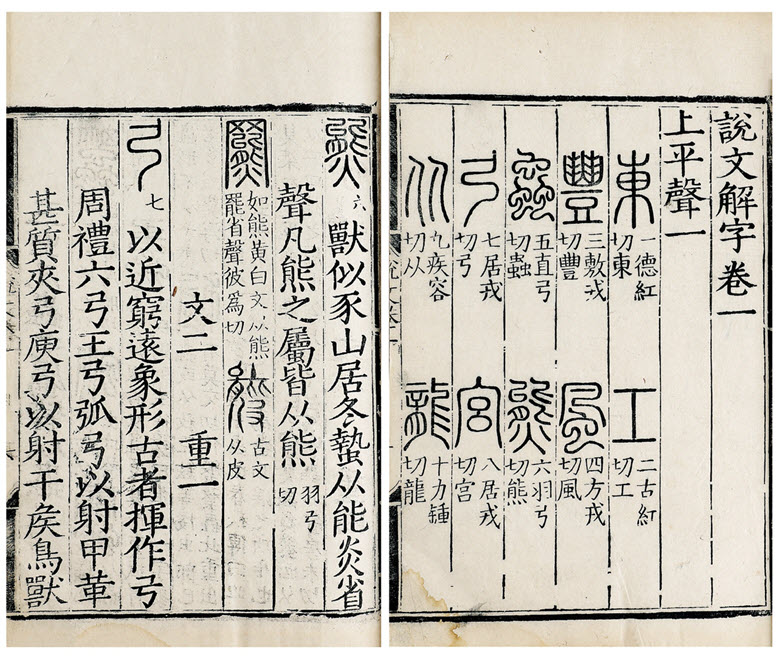 說文解字卷一
上平聲一
東 一德紅切東 工 二古紅切工
豐 三敷戎切豐 風 四方戎切風
蟲 五直弓切蟲 熊 六羽弓切熊
弓 七居戎切弓 宮 八居戎切宮
从 九疾容切从 龍 十力鍾切龍
熊 六 獸似豕山居冬蟄从能炎省
聲凡熊之屬皆从熊 羽弓切
羆 如熊黃白文从熊罷省聲彼為切 古文从皮
文二 重一
弓 七 以近窮遠象形古者揮作弓
周禮六弓王弓弧弓以射甲革
甚質夾弓庾弓以射干矦鳥獸